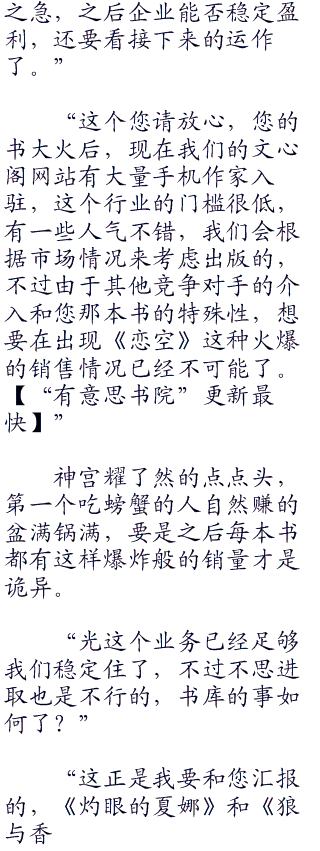 之急，之后企业能否稳定盈
利，还要看接下来的运作
了。”
“这个您请放心，您的
书大火后，现在我们的文心
阁网站有大量手机作家入
驻，这个行业的门槛很低，
有一些人气不错，我们会根
据市场情况来考虑出版的，
不过由于其他竞争对手的介
入和您那本书的特殊性，想
要在出现《恋空》这种火爆
的销售情况已经不可能了。
【“有意思书院”更新最
快】”
神宫耀了然的点点头，
第一个吃螃蟹的人自然赚的
盆满锅满，要是之后每本书
都有这样爆炸般的销量才是
诡异。
“光这个业务已经足够
我们稳定住了，不过不思进
取也是不行的，书库的事如
何了？”
“这正是我要和您汇报
的，《灼眼的夏娜》和《狼
与香